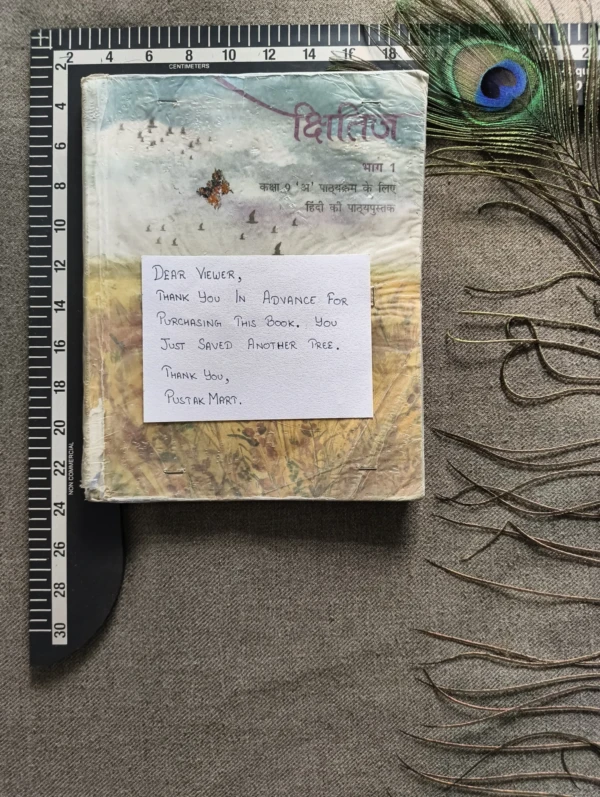 2 4 6 8 10 12 14 16 18
CENTIMETERS
2
4
6
8
10
12
14
16
18
20
22
24
26
28
30
NON COMMERCIAL
क्षितिज
भाग 1
कक्षा 9 'अ' पाठ्यक्रम के लिए
हिंदी की पाठ्यपुस्तक
DEAR VIEWER,
THANK YOU IN ADVANCE FOR
PURCHASING THIS BOOK. YOU
JUST SAVED ANOTHER TREE.
THANK YOU,
PUSTAK MART.